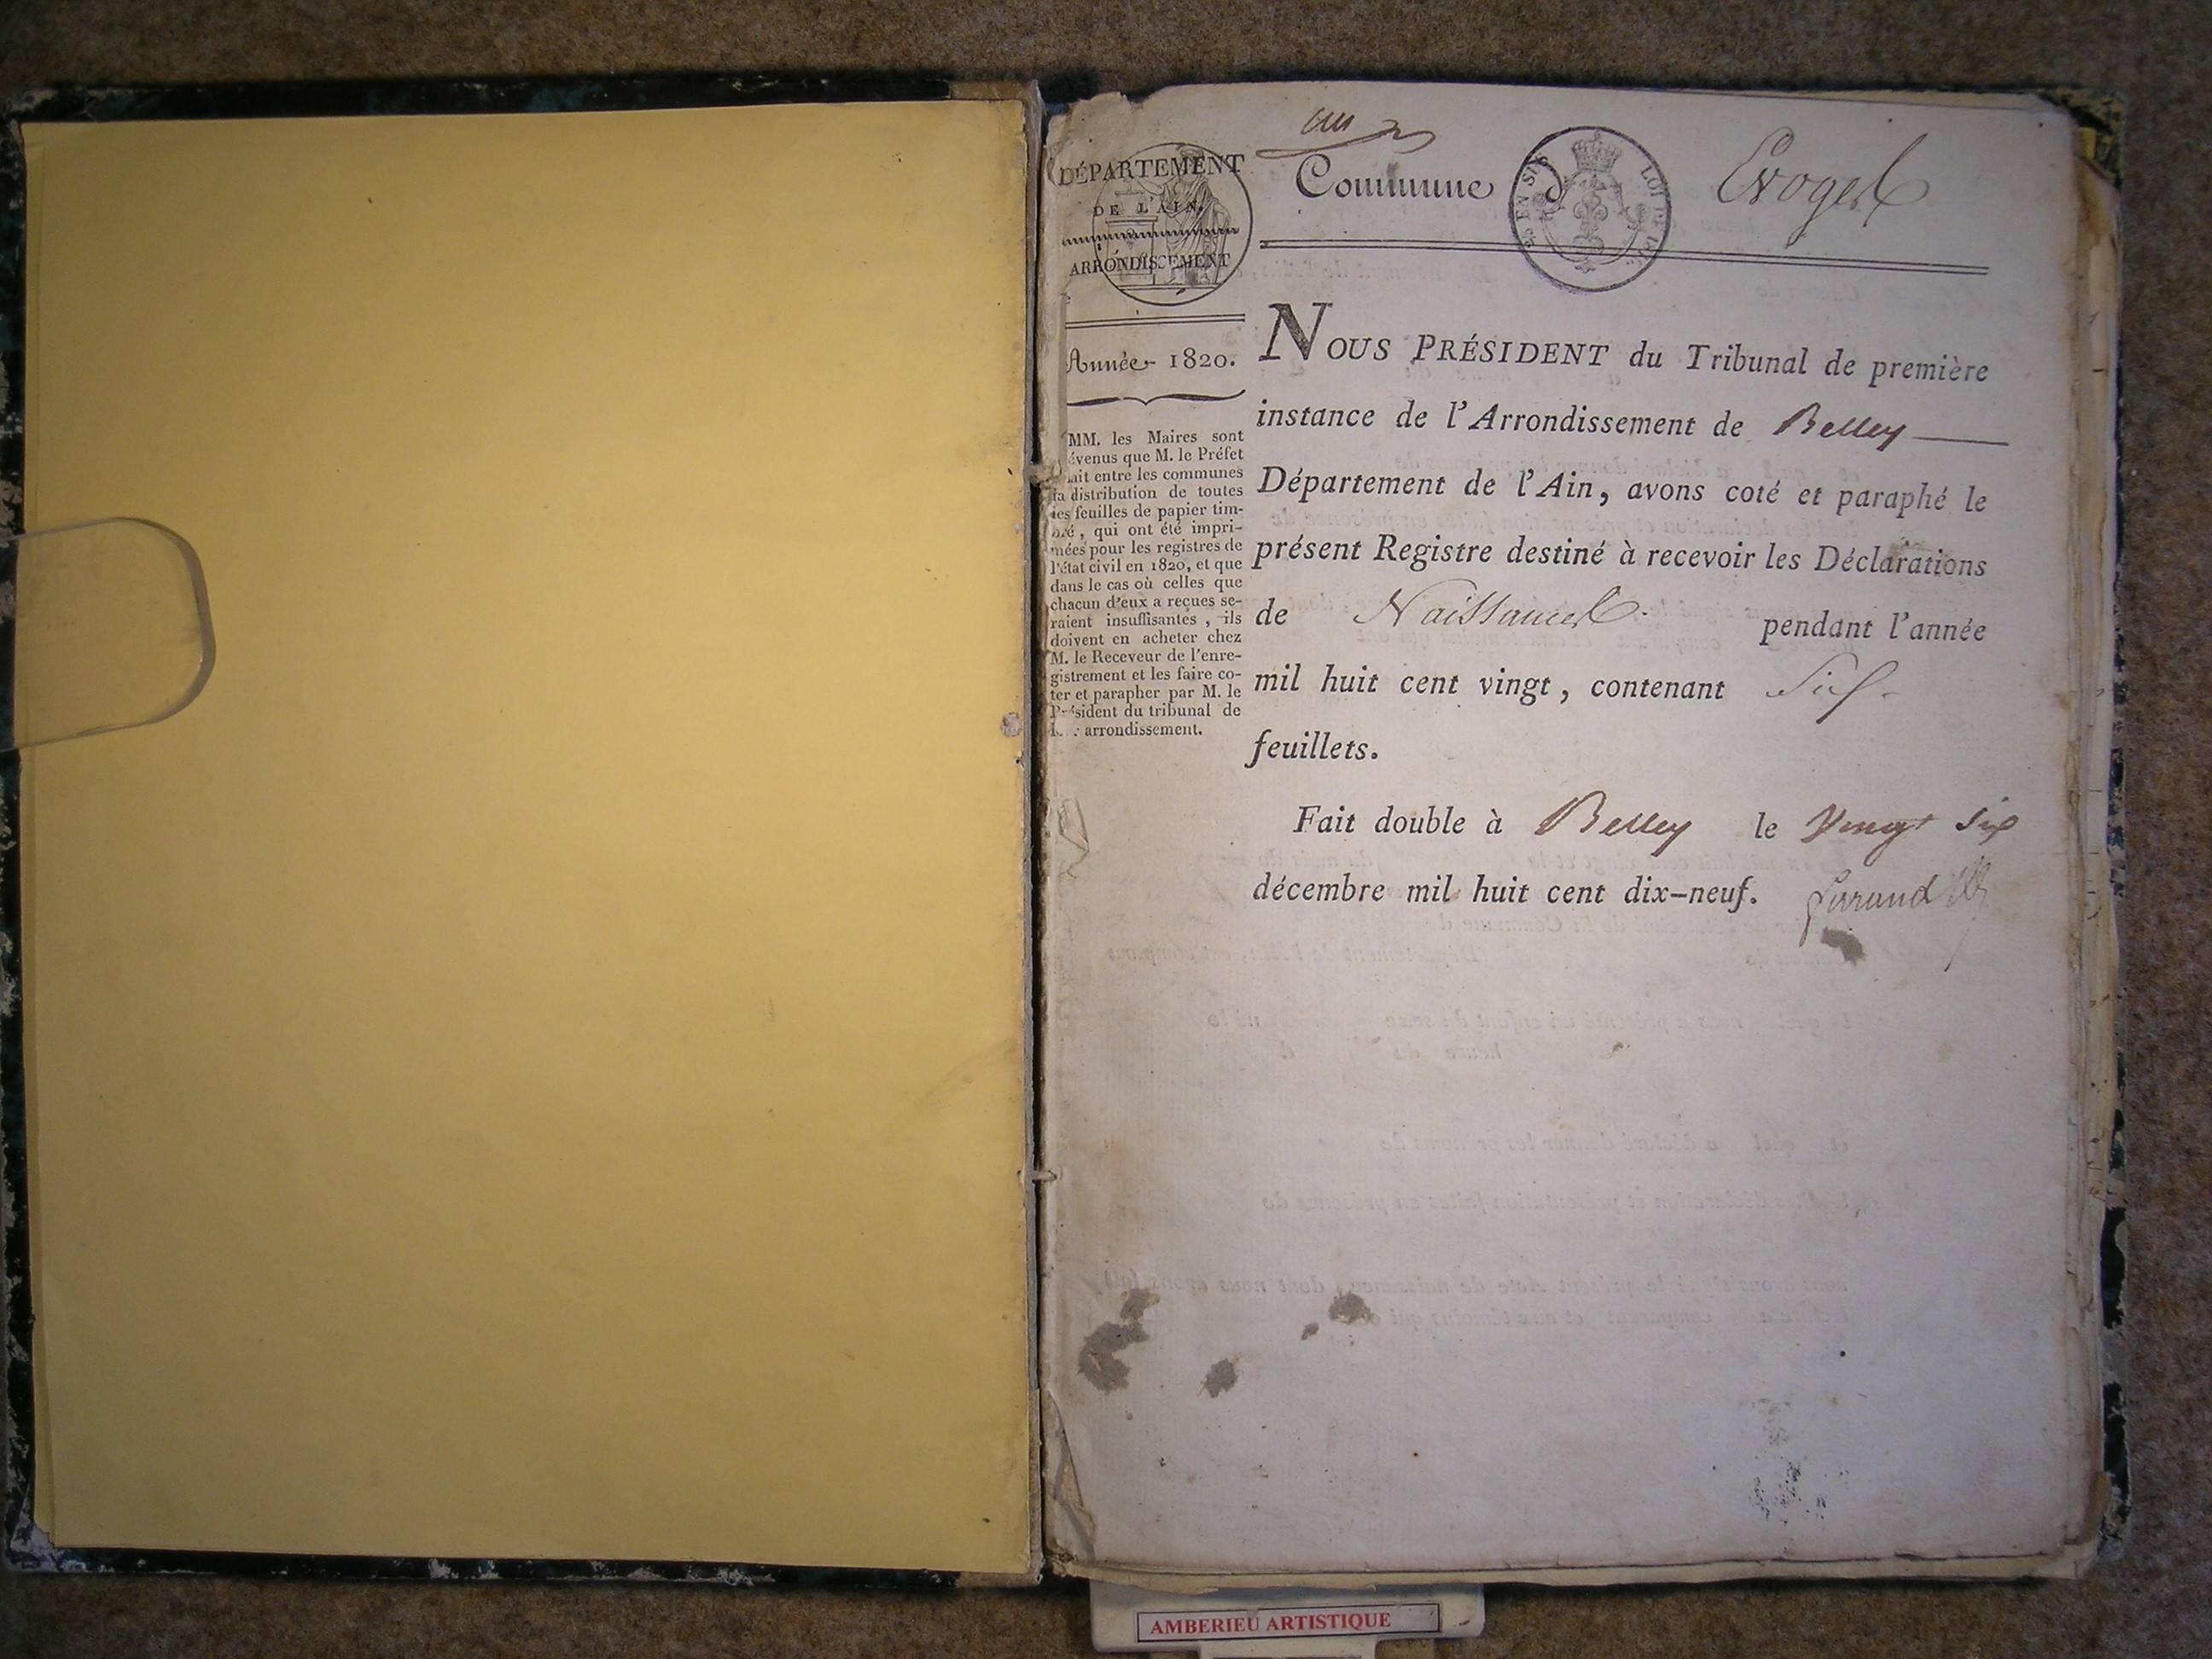 un
DÉPARTEMENT
DE L'AIN.
ARRONDISSEMENT
Commune d'Evoges
Année 1820.
MM. les Maires sont
évenus que M. le Préfet
ait entre les communes
la distribution de toutes
les feuilles de papier tim-
bré, qui ont été impri-
mées pour les registres de
l'état civil en 1820, et que
dans le cas où celles que
chacun d'eux a reçues se-
raient insuffisantes, ils
doivent en acheter chez
M. le Receveur de l'enre-
gistrement et les faire co-
ter et parapher par M. le
Président du tribunal de
arrondissement.
NOUS PRÉSIDENT du Tribunal de première
instance de l'Arrondissement de Belley
Département de l'Ain, avons coté et paraphé le
présent Registre destiné à recevoir les Déclarations
de Naissances pendant l'année
mil huit cent vingt, contenant Six
feuillets.
Fait double à Belley le Vingt Six
décembre mil huit cent dix-neuf.
AMBERIEU ARTISTIQUE